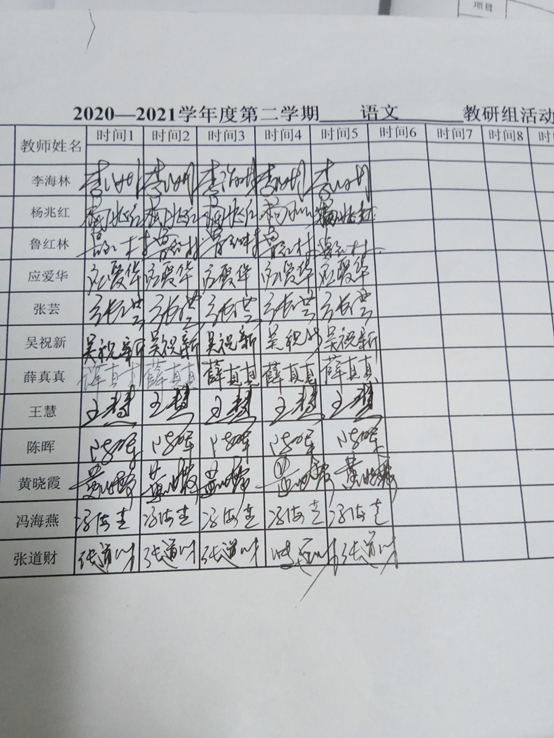 项目
2020—2021学年度第二学期 语文 教研组活动
教师姓名 时间1 时间2 时间3 时间4 时间5 时间6 时间7 时间8
李海林 李海林 李海林 李海林 李海林 李海林
杨兆红 杨兆红 杨兆红 杨兆红 杨兆红 杨兆红
鲁红林 鲁红林 鲁红林 鲁红林 鲁红林 鲁红林
应爱华 应爱华 应爱华 应爱华 应爱华 应爱华
张芸 张芸 张芸 张芸 张芸 张芸
吴祝新 吴祝新 吴祝新 吴祝新 吴祝新 吴祝新
薛真真 薛真真 薛真真 薛真真 薛真真 薛真真
王慧 王慧 王慧 王慧 王慧 王慧
陈晖 陈晖 陈晖 陈晖 陈晖 陈晖
黄晓霞 黄晓霞 黄晓霞 黄晓霞 黄晓霞 黄晓霞
冯海燕 冯海燕 冯海燕 冯海燕 冯海燕 冯海燕
张道财 张道财 张道财 张道财 张道财 张道财